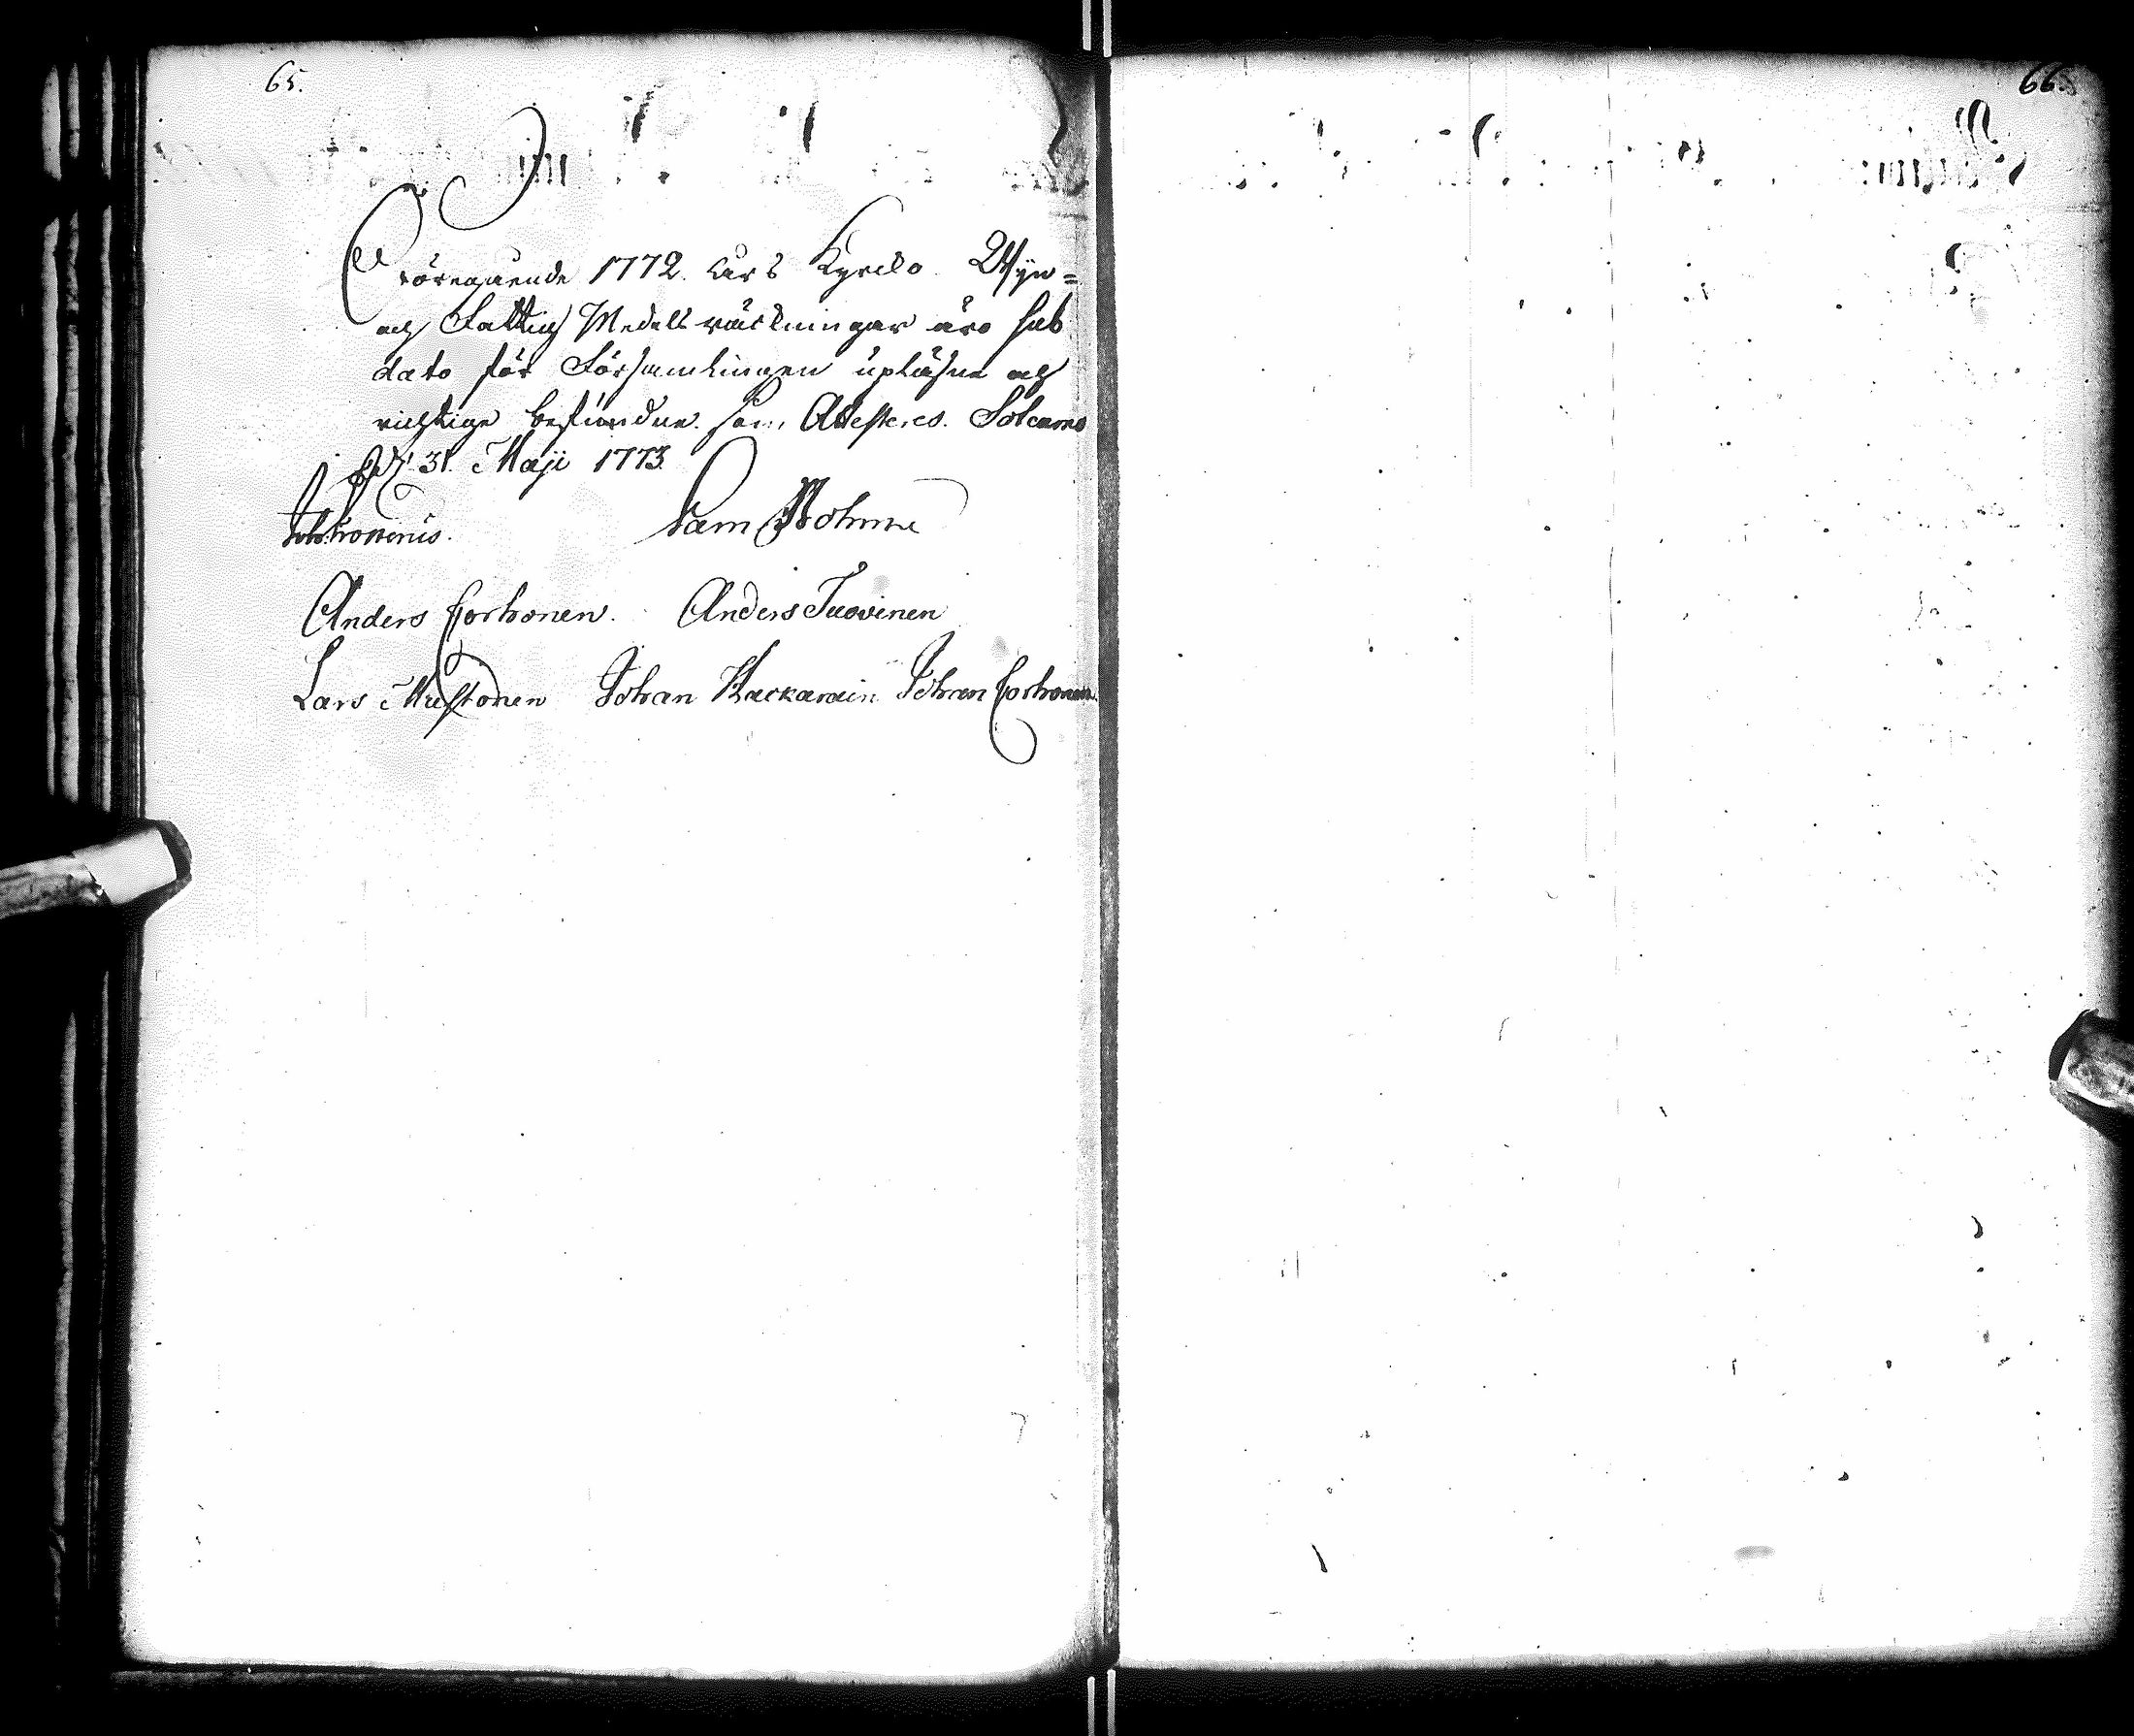 65.
66.
Föregående 1772 års Kyrcko Wijn=
och Fattig Medels räckningar äro sub
dato för Församlingen upläsne och
richtige befundne som Attesteres. Sotcamo
d. 31. Maji 1773.
Sam Bohme
Anders Corhonen. Anders Tuovinen
Lars Mustonen Johan Karkarain Johan Corhonen